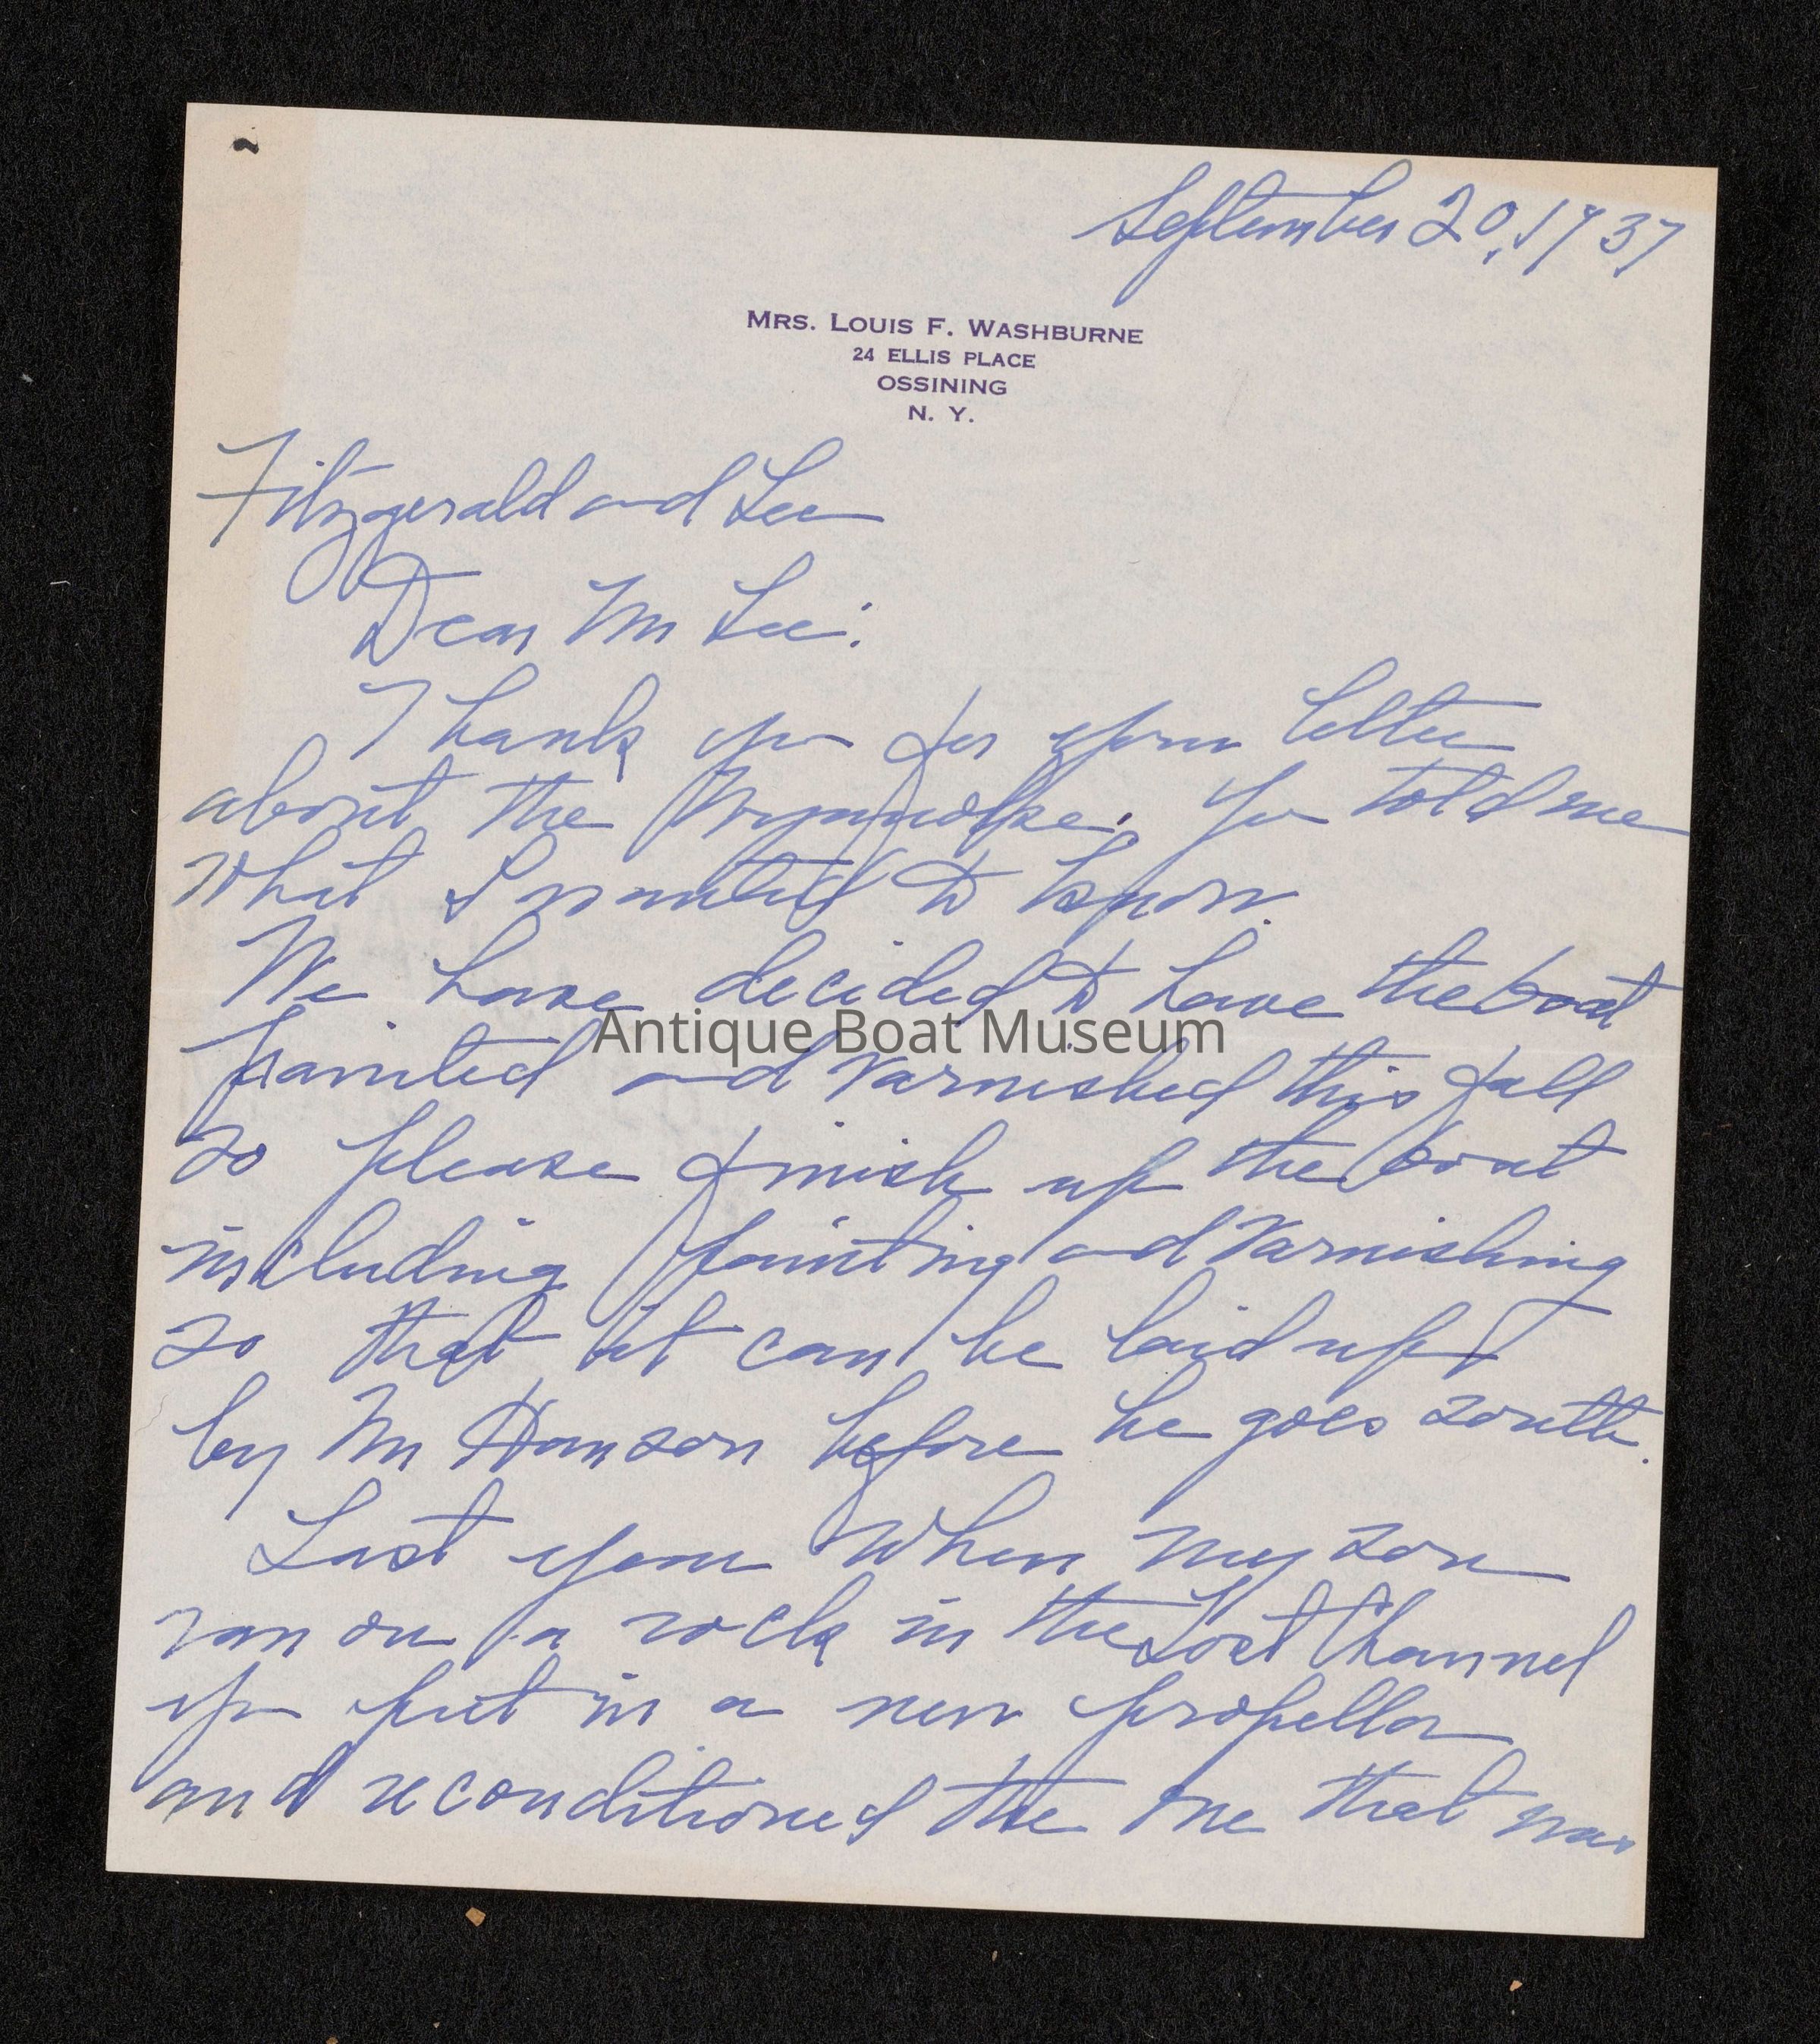 September 20, 1937
MRS. LOUIS F. WASHBURNE
24 ELLIS PLACE
OSSINING
N. Y.
Fitzgerald and Lee
Dear Mr Lee:
Thank you for your letter
about the You told me
what I wanted to know.
We have decided to have the boat
Antique Boat Museum
painted and varnished this fall
so please finish up the boat
including painting and varnishing
so that it can be laid up
by Mr Hanson before he goes south.
Last year when my son
ran on a rock in the Lost Channel
you put in a new propellor
and reconditioned the one that was